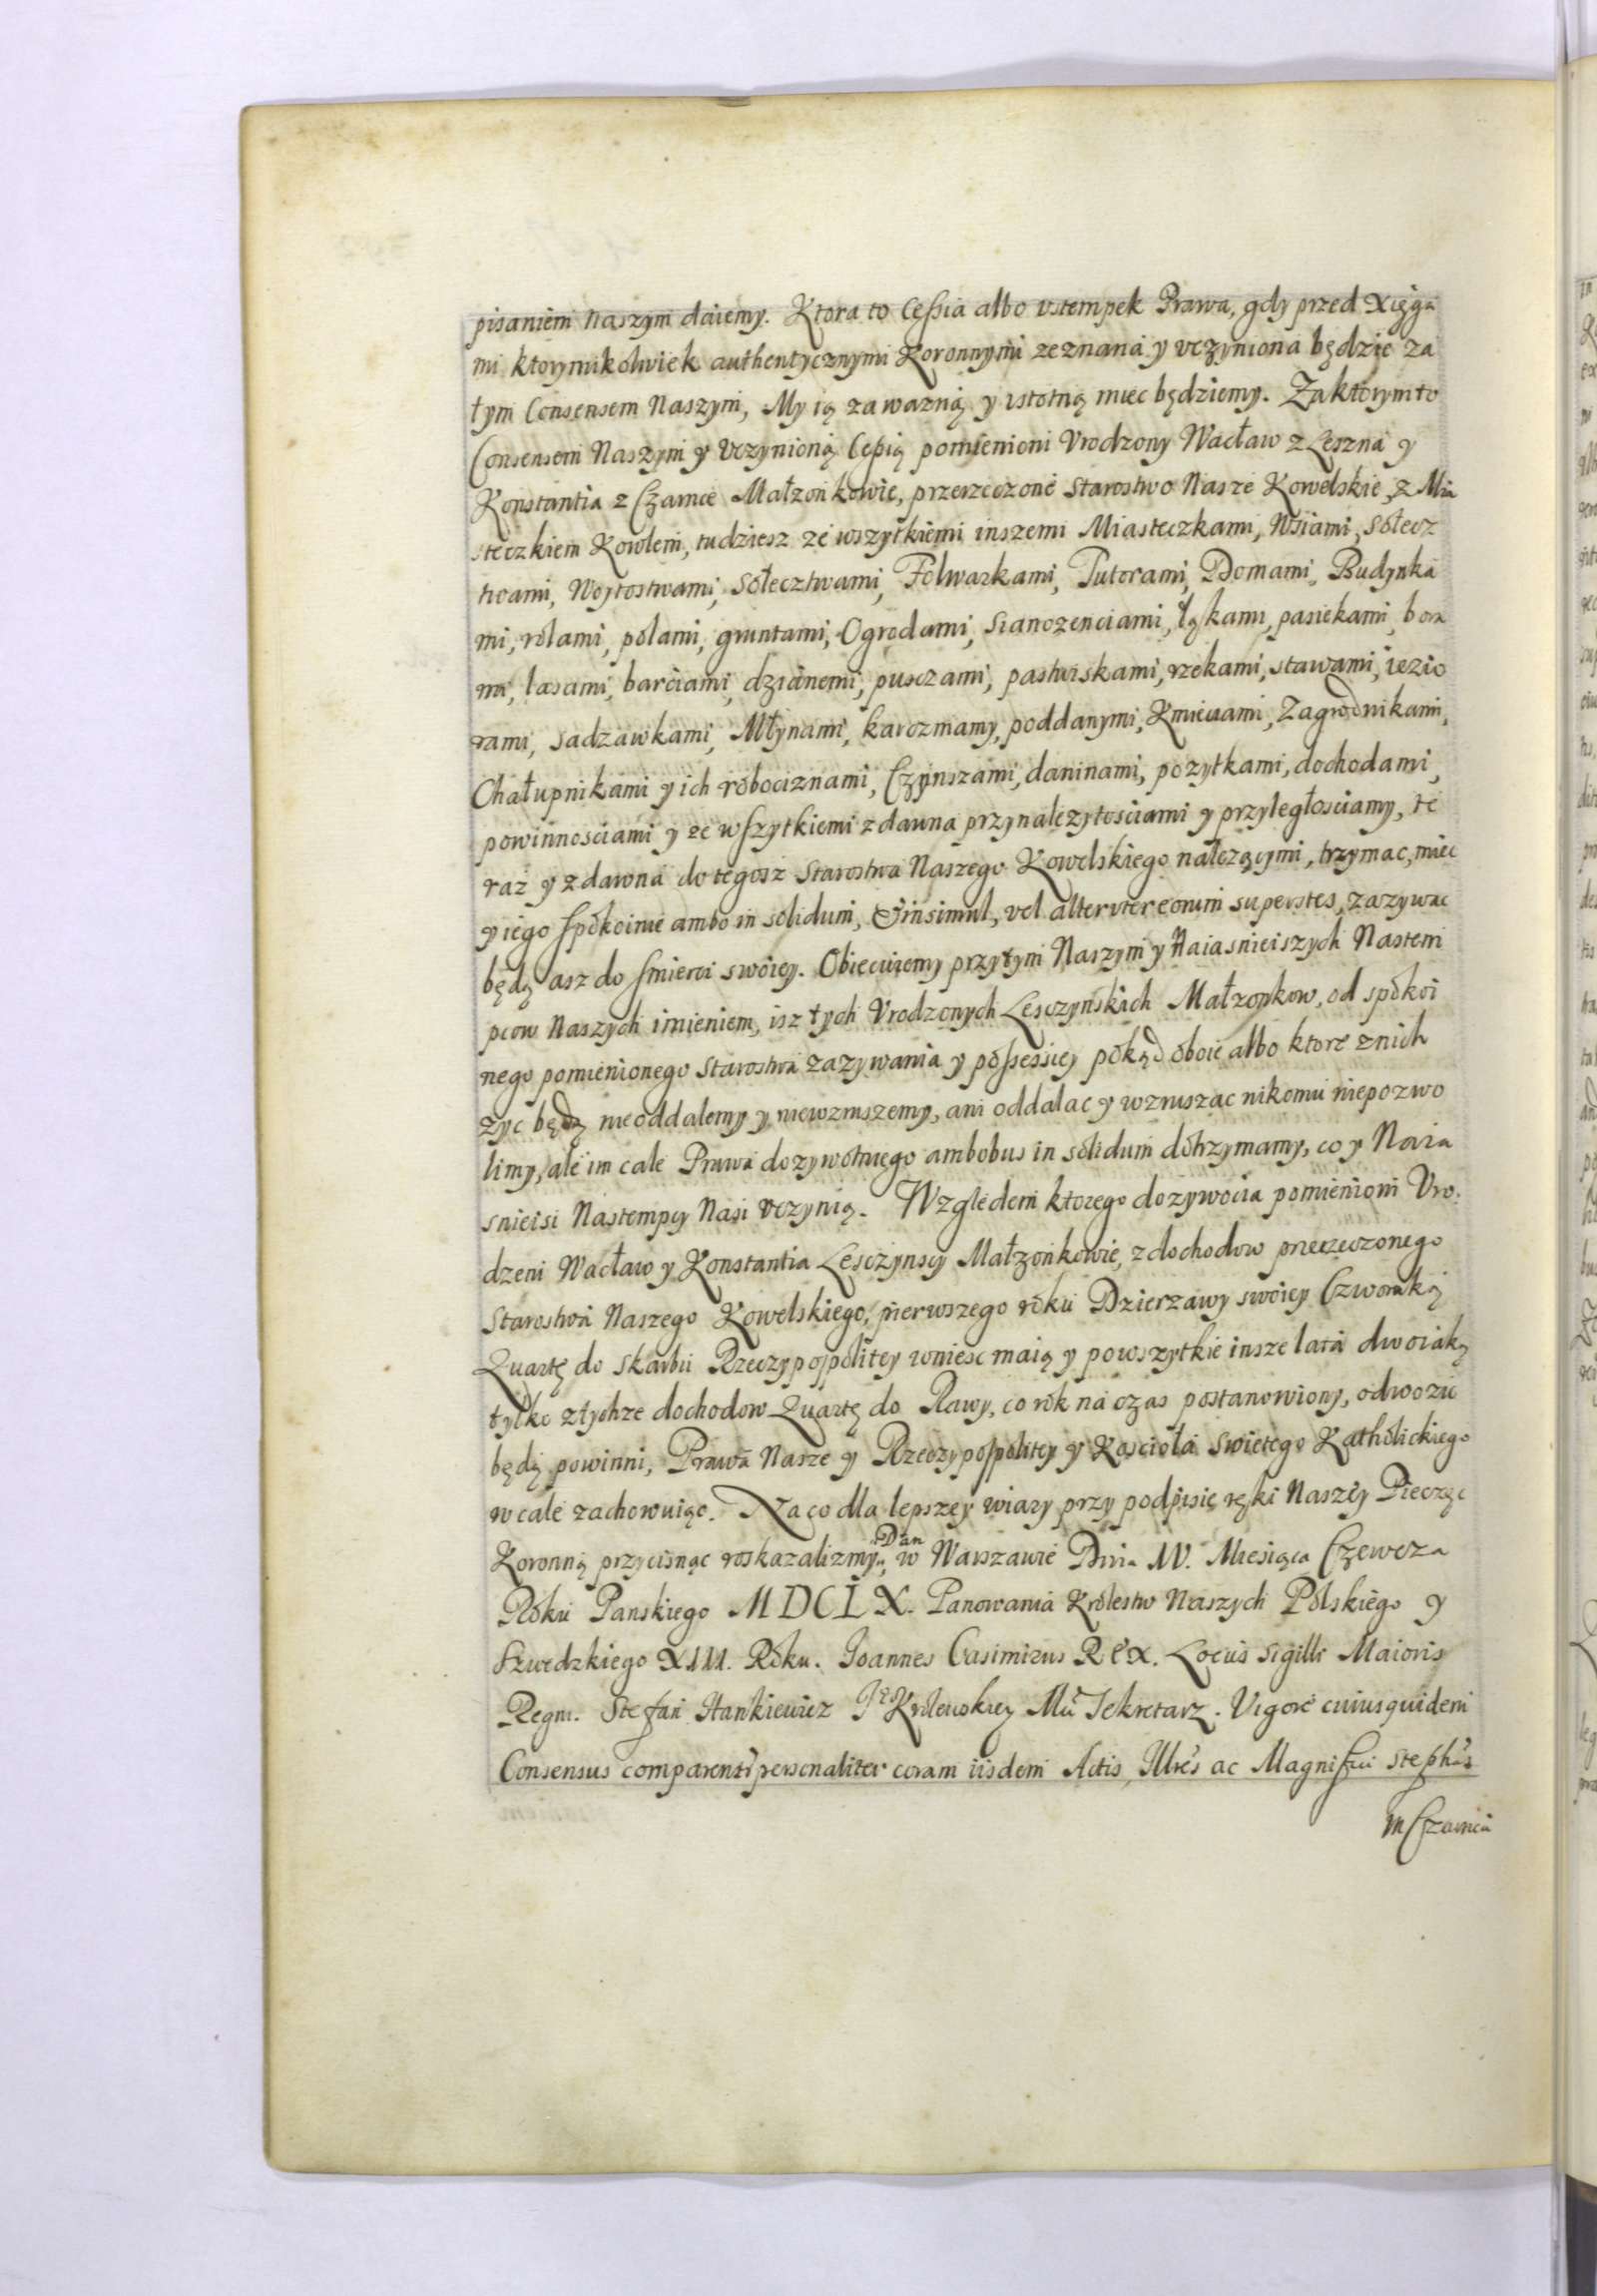 pisaniem naszym daiemy. Ktora to Cessia albo vstempek Prawa, gdy przed Xięga
mi ktorymikolwiek authentycznymi Koronnymi zeznana y vczyniona będzie za
tym Consensem Naszym, My ią za wazną y istotną miec będziemy. Za ktorym to
Consensem Naszym y Vczynioną Cessią pomienioni Vrodzony Wacław z Leszna y
Konstantia z Czarnce Małzonkowie, przerzeczone Starostwo Nasze Kowelskie, z Mia
steczkiem Kowlem, tudziesz ze wszytkiemi inszemi Miasteczkami, Wsiami, Sołecz
twami, Woytostwami, Sołecztwami, Folwarkami, Futorami, Domami, Budynka
mi, rolami, polami, gruntami, Ogrodami, Sianozenciami, łąkami, pasiekami, bora
mi, lasami, barciami, dzianemi, pusczami, pastwiskami, rzekami, stawami, iezio
rami, sadzawkami, Młynami, karczmamy, poddanymi, Kmieciami, Zagrodnikami,
Chałupnikami y ich robociznami, Czynszami, daninami, pozytkami, dochodami,
powinnosciami y ze wszytkiemi zdawna przynalezytosciami y przyległosciamy, te
raz y zdawna do tegosz Starostwa Naszego Kowelskiego nalezącymi, trzymac, miec
y iego spokoinie ambo in solidum, & insimul, vel alteruter eorum superstes, zazywac
będą asz do smierci swoiey. Obiecuiemy przytym Naszym y Naiasnieiszych Nastem
pcow Naszych imieniem, isz tych Vrodzonych Lesczynskich Małzonkow, od spokoi
nego pomienionego Starostwa zazywania y possessiey pokąd oboie albo ktore znich
zyc będą nieoddalemy y niewzruszemy, ani oddalac y wzruszac nikomu niepozwo
limy, ale im cale Prawa dozywotniego ambobus in solidum dotrzymamy, co y Naia
snieisi Nastempcy Nasi vczynią. Względem ktorego dozywocia pomienioni Vro
dzeni Wacław y Konstantia Lesczynscy Małzonkowie, z dochodow przerzeczonego
Starostwa Naszego Kowelskiego, pierwszego roku Dzierzawy swoiey Czworaką
Quartę do Skarbu Rzeczypospolitey wniesc maią y powszytkie insze lata dwoiaką
tylko ztychze dochodow Quartę do Rawy, co rok na czas postanowiony, odwozic
będą powinni, Prawa Nasze y Rzeczypospolitey y Koscioła Swietego Katholickiego
w cale zachowuiąc. Na co dla lepszey wiary przy podpisie ręki Naszey Pieczęc
Koronną przycisnąc roskazalizmy. Dan w Warszawie Dnia IV. Miesiąca Czewcza
Roku Panskiego MDCLX. Panowania Krolestw Naszych Polskiego y
Szwedzkiego XIII. Roku. Joannes Casimirus REX. Locus Sigilli Maioris
Regni. Stefan Hankiewicz Je Krolewskiey Mci Sekretarz. Vigore cuiusquidem
Consensus comparentes personaliter coram iisdem Actis, Illres ac Magnifici Stephus
in Czarnca